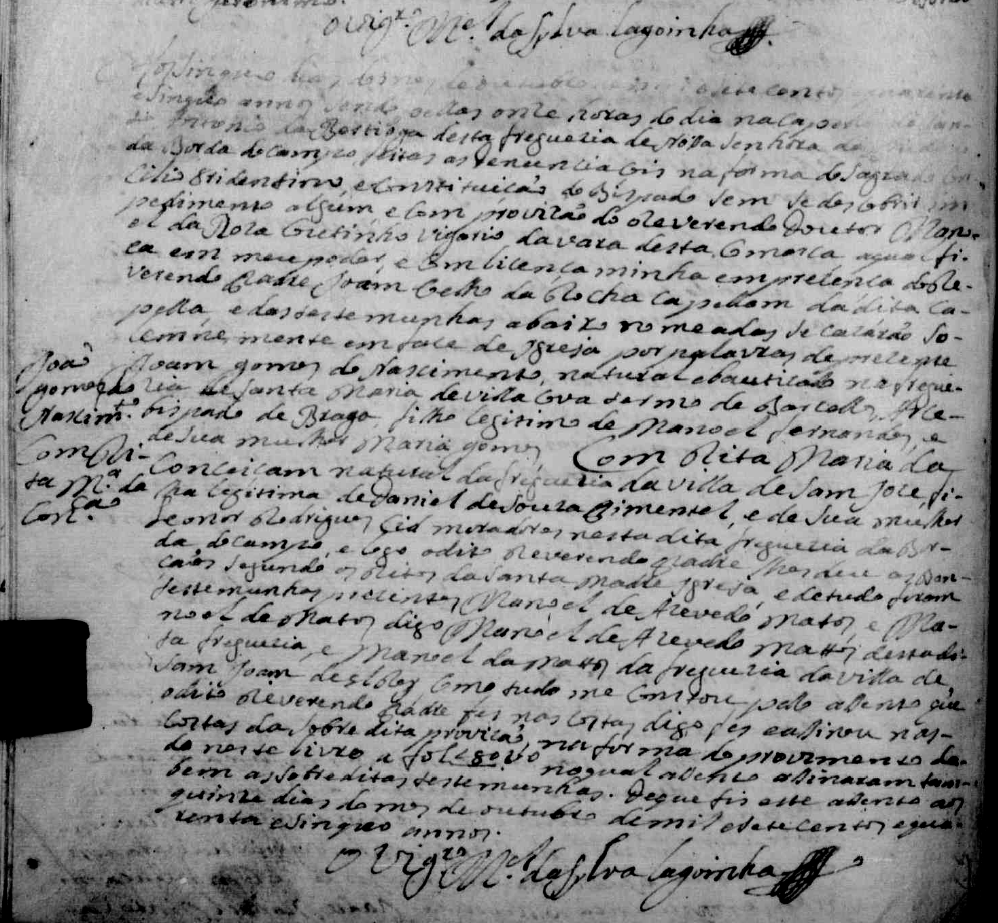 O Vigr.º M.el da Sylva Lagoinha
Aos sinqueo dias do mes de outubro de mil e sete centos e quarenta
e sinqueo annos sendo pellas onze horas do dia na Capella de San-
to Antonio da Bertioga desta freguezia de Nossa Senhora da
da Borda do campo feitas as denunciacois na forma do Sagrado Con-
cilio Tridentino, e Constituicaõ do Bispado sem se descobrir im
pedimento algum e com provizaõ do Reverendo Doutor Mano-
el da Roza Coutinho vigario da vara desta Comarca aqual fi-
ca em meu poder, e Com licença minha em prezença do Re-
verendo Padre Joam Coelho da Rocha Capellam da dita Ca-
pella, e das testemunhas abaixo nomeadas se cazaraõ So-
lemnemente em face de Igreja por palavras de prezente
Joam gomes do Nascimento, natural e bautizado na fregue-
zia de Santa Maria de villa Cova termo de Barcellos, Arce-
bispado de Braga, filho legitimo de Manoel fernandes, e
de Sua mulher Maria gomes Com Rita Maria da
Conceicam natural da freguezia da villa de Sam Joze, fi-
lha legitima de Daniel de Souza Pimentel, e de Sua mulher
Leonor Rodrigues Cid moradores nesta dita freguezia da Bor-
da do campo, e logo o dito Reverendo Padre lhes deu as Ben-
çaõs segundo os Ritos da Santa Madre Igreja, e de tudo foram
testemunhas prezentes Manoel de Azevedo Matos, e Ma-
noel de Matos digo Manoel de Azevedo Mattos desta di-
ta freguezia, e Manoel da Mattos da freguezia da villa de
Sam Joam de elRey Como tudo me constou pelo acento que
o dito Reverendo Padre fes nas costas digo fes e asinou nas
costas da Sobredita provizaõ na forma do provimento da-
do neste livro a fol. noqual acento asinaram tam-
bem as sobreditas testemunhas. De que fis este acento aos
quinze dias do mes de outubro de mil e sete centos e qua-
renta e Sinqueo annos.
O Vigr.º M.el da Sylva Lagoinha
Joaõ
gomes do
Nascim.to
Com Ri-
ta M.a da
Conc.am